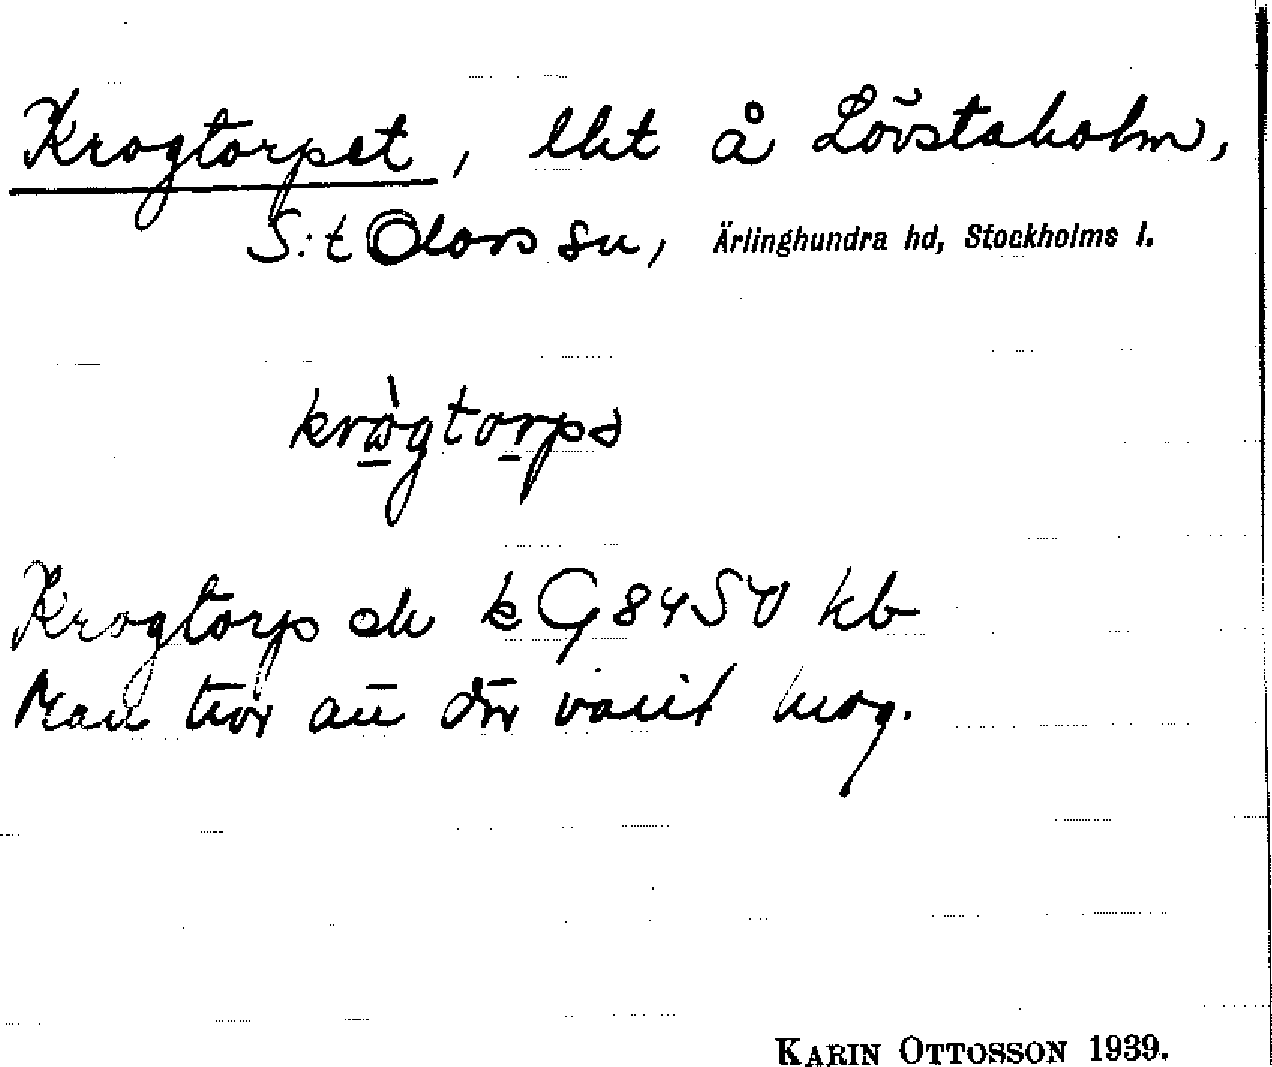 Krogtorpet, lht å Lövstaholm,
S:t Olovs sn, Ärlinghundra hd, Stockholms l.
krògtorps
Krogtorp ek kG 8450 kb
Man tror att där varit krog.
KARIN OTTOSSON 1939.